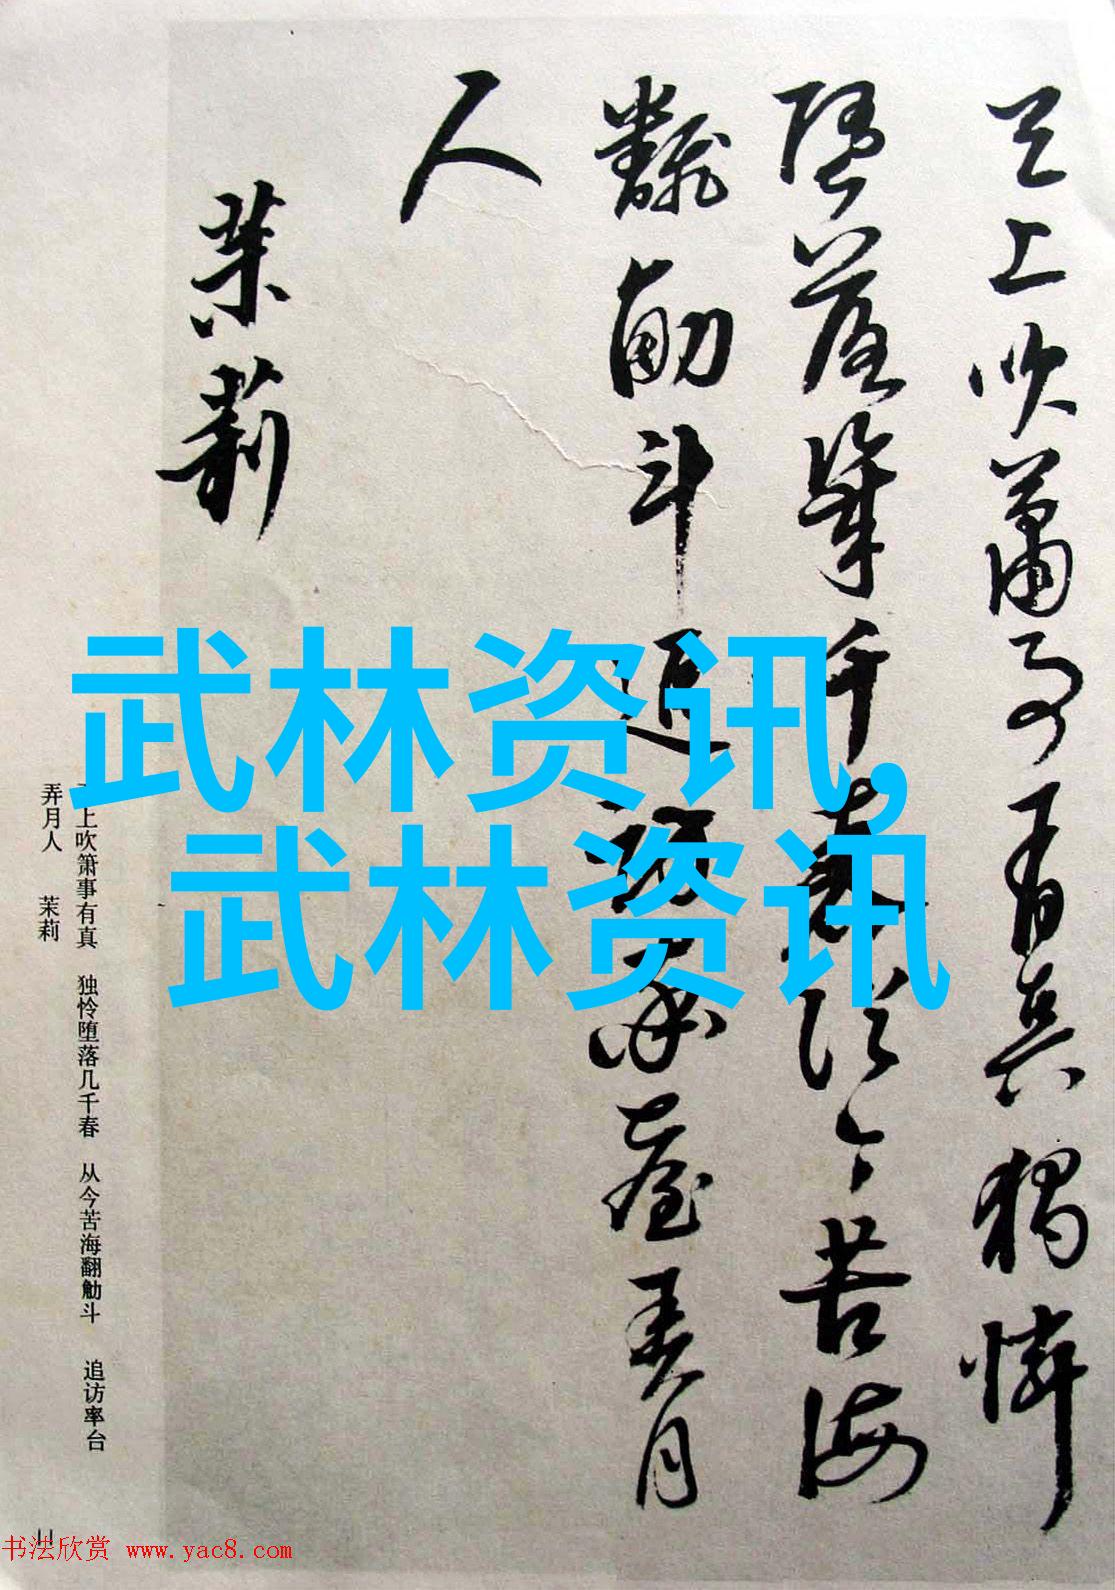 天上吹箫事有真独怜
堕落幾千春從今苦海
飜觔斗追访率臺弄月
人
茉莉
武林资讯,
武林资讯
上吹箫事有真 独怜堕落几千春 从今苦海翻觔斗 追访率台
弄月人 茉莉
11
书法欣赏 www.yac8.com